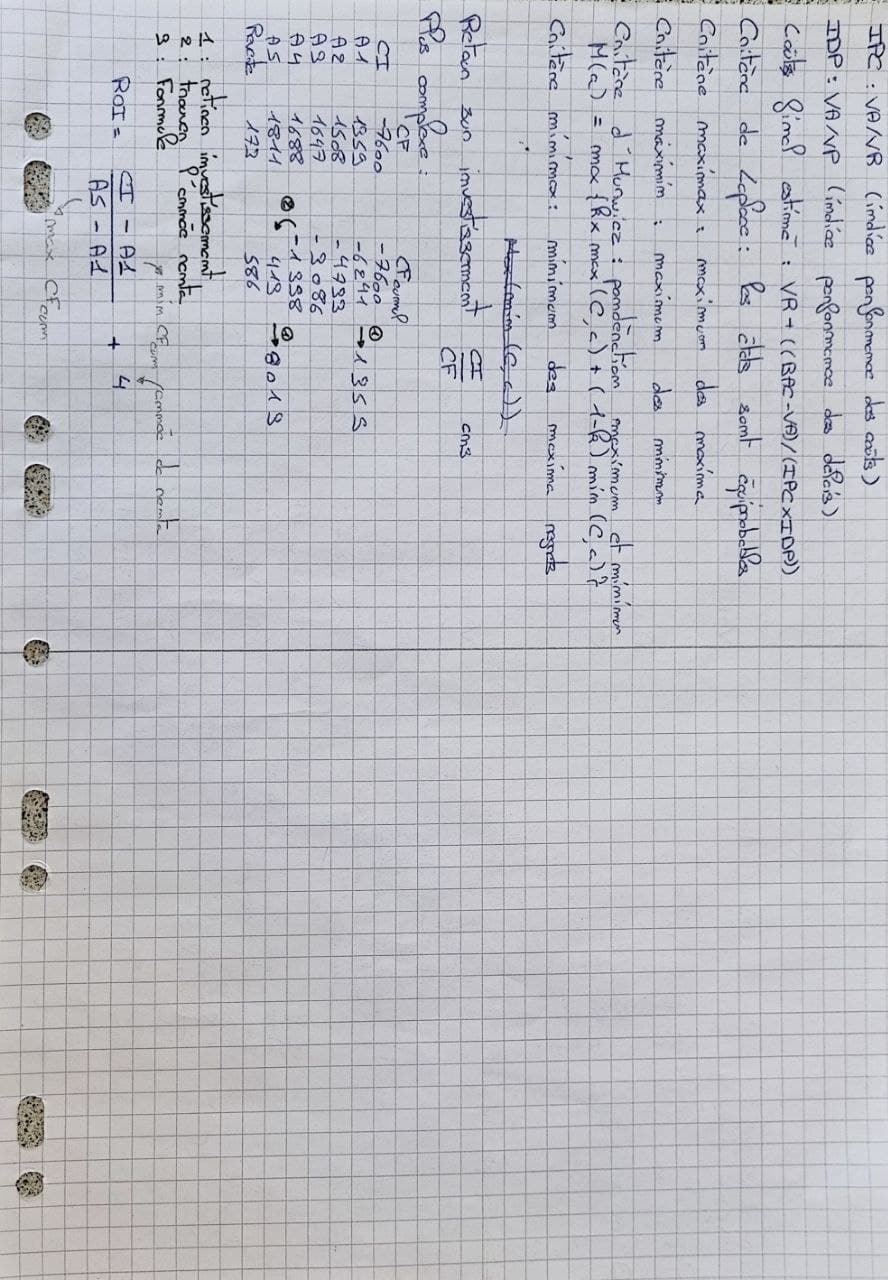 IPC : VA/VR (indice performance des coûts)
IDP : VA/VP (indice performance des délais)
Coûts final estimé : VR + ((BAC-VA)/(IPC×IDP))
Critère de Laplace : les états sont équiprobables
Critère maximax : maximum des maxima
Critère maximin : maximum des minimum
Critère d'Hurwicz : pondération maximum et minimum
M(a) = max {h x max (C, c) + (1-h) min (C, c)}
Critère minimax : minimum des maxima regrets
Max(min (C, c))
Retour sur investissement CI/CF ens
Plus complexe :
CF CFcumul
CI -7600 -7600 ①
A1 1359 -6241 → 1359
A2 1508 -4733
A3 1647 -3086
A4 1688 ② ( -1398 ①
A5 1811 413 → 8013
Reste 173 586
1 : retirer investissement
2 : trouver l'année renta
3 : Formule
min CFcum / année de renta
ROI = CI - A1 / A5 - A1 + 4
max CFcum